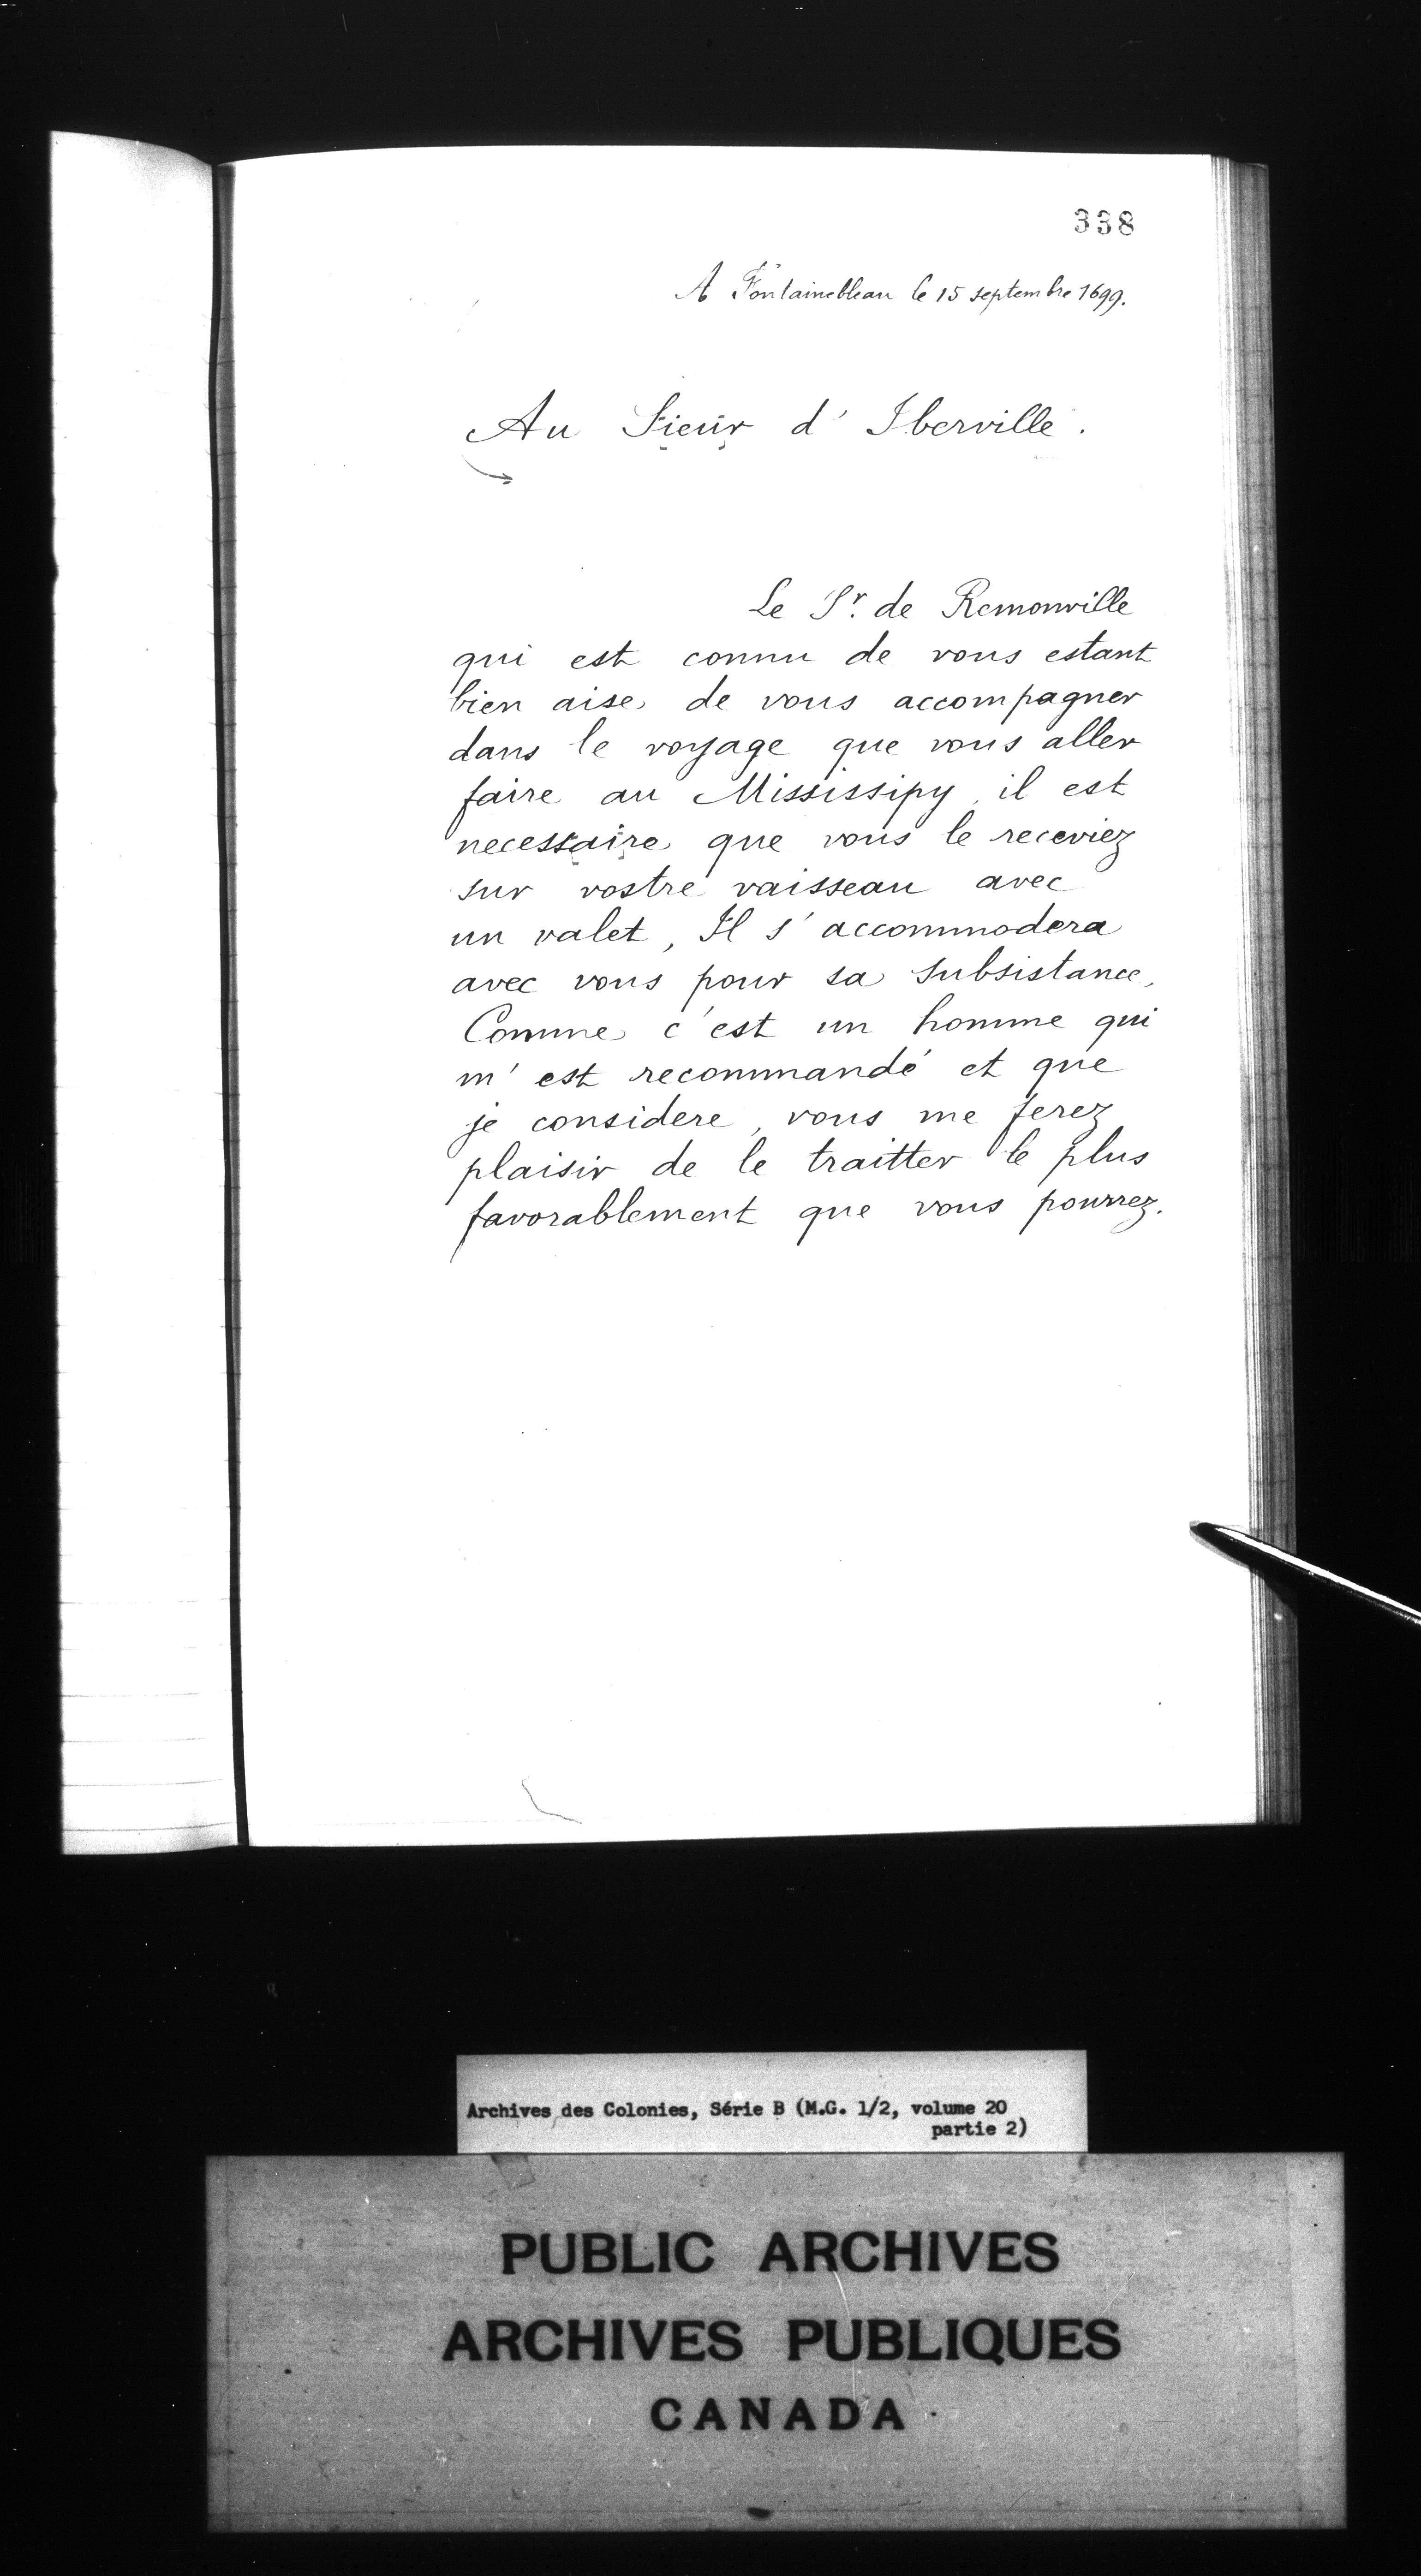 338
A Fontainebleau le 15 septembre 1699.
Au Sieur d'Iberville.
Le Sr. de Remonville
qui est connu de vous estant
bien aise de vous accompagner
dans le voyage que vous aller
faire au Mississipy, il est
necessaire que vous le receviez
sur vostre vaisseau avec
un valet, Il s'accommodera
avec vous pour sa subsistance,
Comme c'est un homme qui
m'est recommandé et que
je considere, vous me ferez
plaisir de le traitter le plus
favorablement que vous pourrez.
Archives des Colonies, Série B (M.G. 1/2, volume 20
partie 2)
PUBLIC ARCHIVES
ARCHIVES PUBLIQUES
CANADA